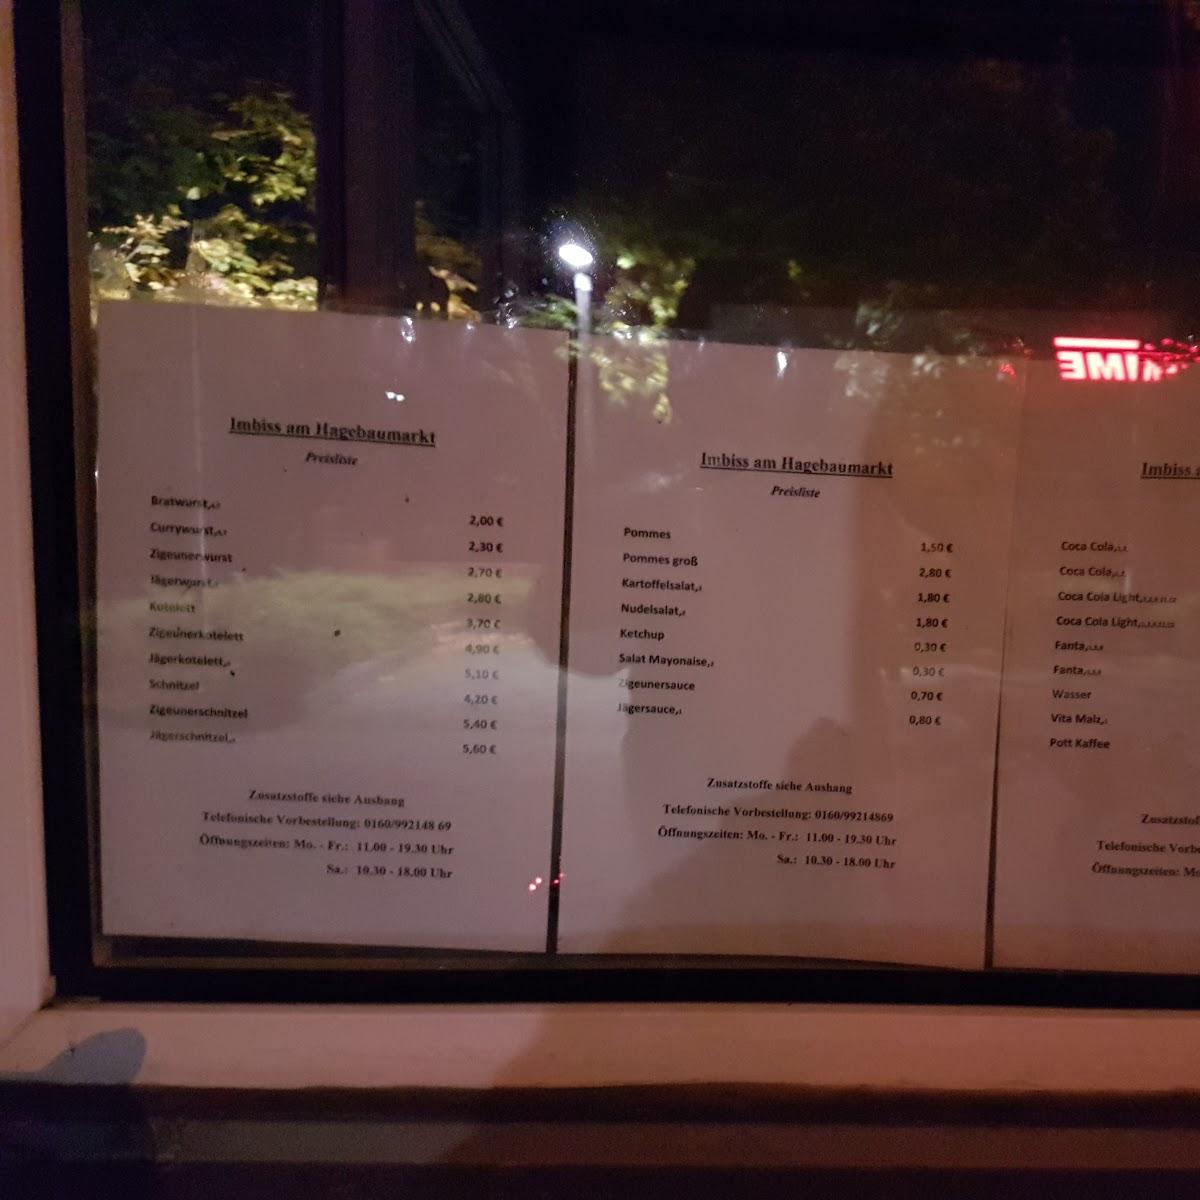 Imbiss am Hagebaumarkt
Preisliste
Bratwurst 2,00 €
Currywurst 2,30 €
Zigeunerwurst 2,70 €
Jägerwurst 2,80 €
Kotelett 3,70 €
Zigeunerkotelett 4,90 €
Jägerkotelett 5,10 €
Schnitzel 4,20 €
Zigeunerschnitzel 5,40 €
Jägerschnitzel 5,60 €
Zusatzstoffe siehe Aushang
Telefonische Vorbestellung: 0160/992148 69
Öffnungszeiten: Mo. - Fr.: 11.00 - 19.30 Uhr
Sa.: 10.30 - 18.00 Uhr
Imbiss am Hagebaumarkt
Preisliste
Pommes 1,50 €
Pommes groß 2,80 €
Kartoffelsalat 1,80 €
Nudelsalat 1,80 €
Ketchup 0,30 €
Salat Mayonaise 0,30 €
Zigeunersauce 0,70 €
Jägersauce 0,80 €
Zusatzstoffe siehe Aushang
Telefonische Vorbestellung: 0160/99214869
Öffnungszeiten: Mo. - Fr.: 11.00 - 19.30 Uhr
Sa.: 10.30 - 18.00 Uhr
Imbiss
Coca Cola
Coca Cola
Coca Cola Light
Coca Cola Light
Fanta
Fanta
Wasser
Vita Malz
Pott Kaffee
Telefonische
Öffnungszeiten: